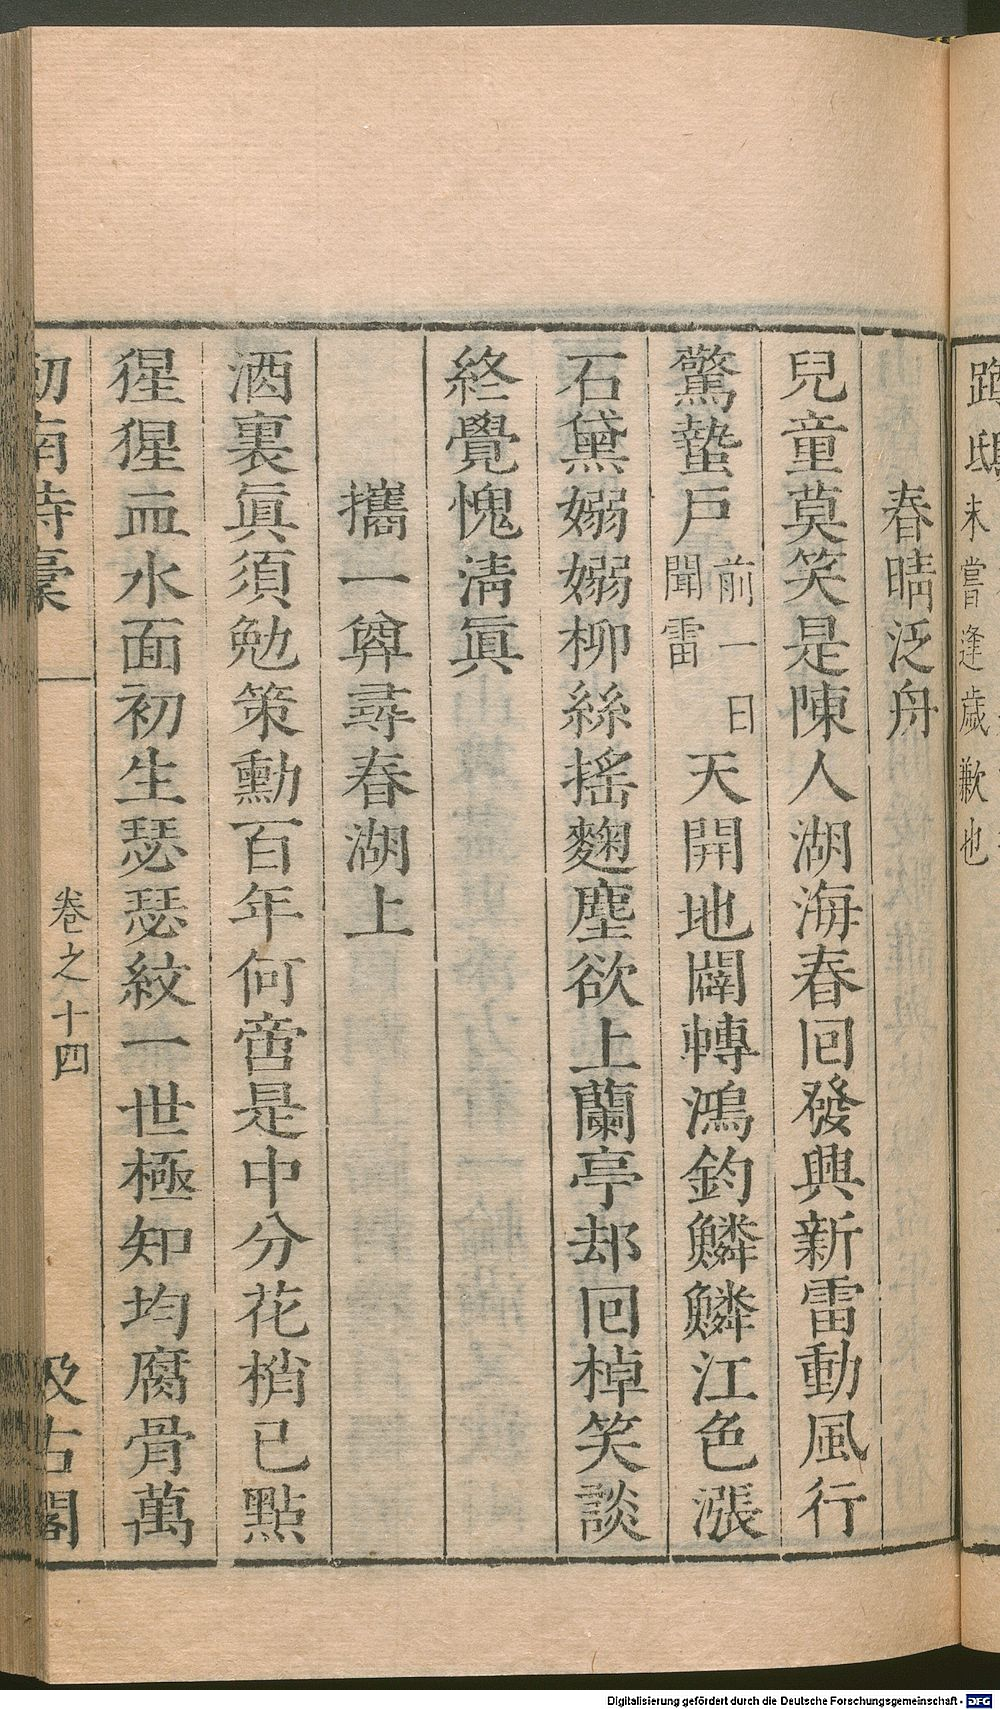 蹲鴟未嘗逢歲歉也
春晴泛舟
兒童莫笑是陳人湖海春回發興新雷動風行
驚蟄戶前一日聞雷天開地闢轉鴻鈞鱗鱗江色漲
石黛嫋嫋柳絲搖麴塵欲上蘭亭却回棹笑談
終覺愧淸眞
攜一尊尋春湖上
酒裏眞須勉策勳百年何啻是中分花梢已點
猩猩血水面初生瑟瑟紋一世極知均腐骨萬
劒南詩稾
卷之十四
汲古閣
Digitalisierung gefördert durch die Deutsche Forschungsgemeinschaft - DFG